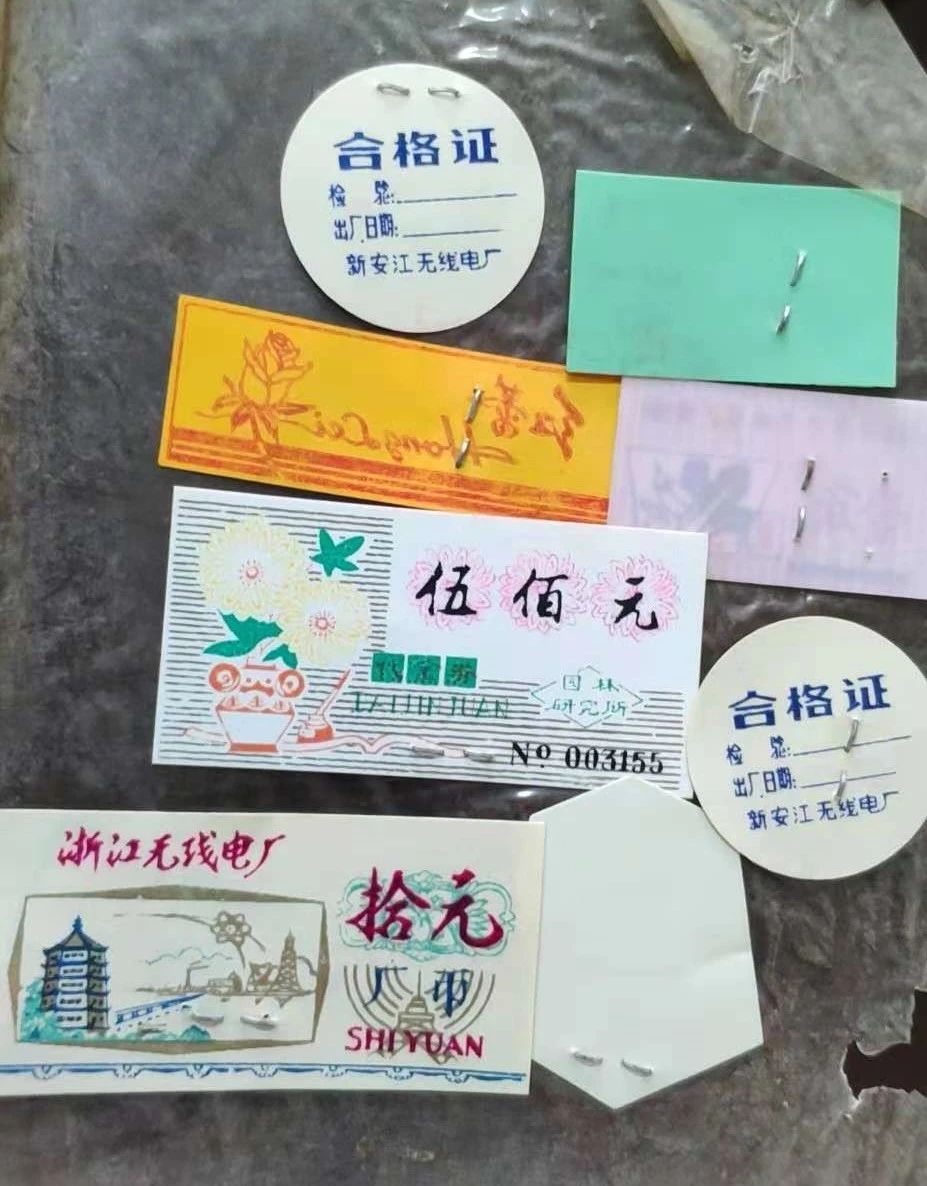 合格证
检 验:
出厂日期:
新安江无线电厂
红蕾
Hong Lei
伍佰元
代金券
DAIJINJUAN
园林
研究所
№ 003155
合格证
检 验:
出厂日期:
新安江无线电厂
浙江无线电厂
拾元
厂币
SHIYUAN